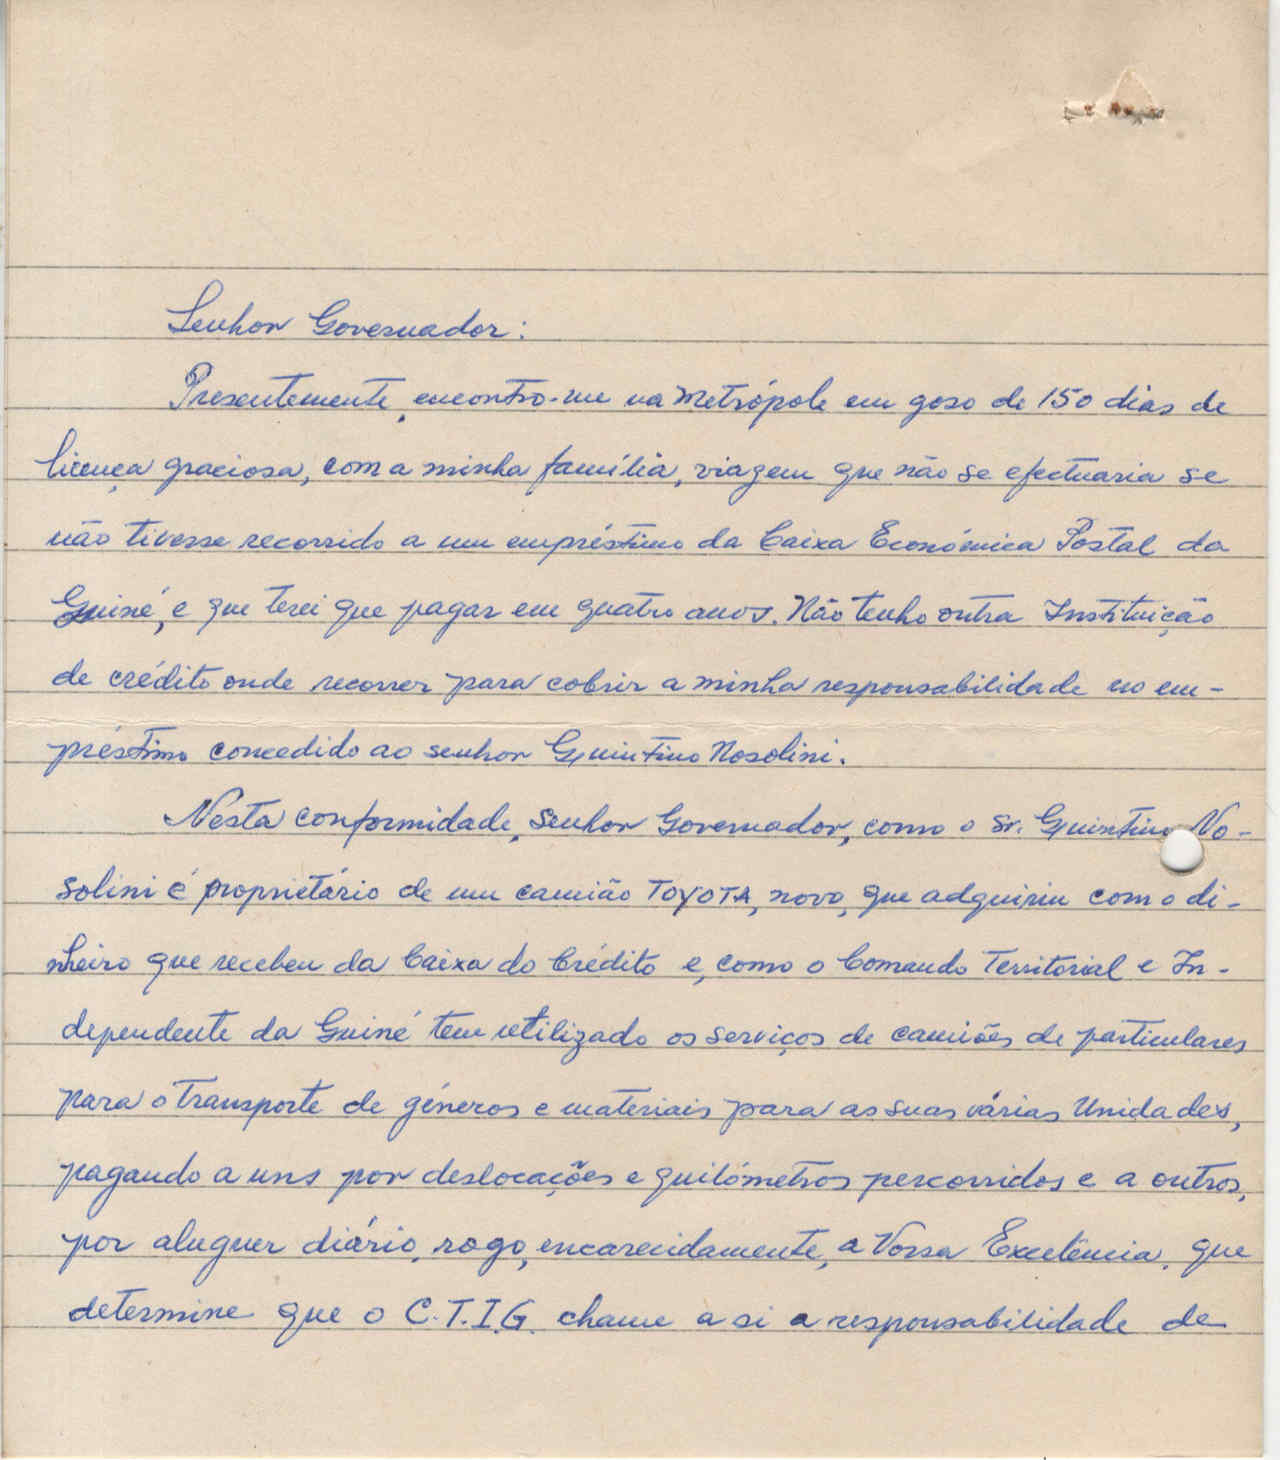 Senhor Governador:
Presentemente, encontro-me na Metrópole em goso de 150 dias de
licença graciosa, com a minha família, viagem que não se efectuaria se
não tivesse recorrido a um empréstimo da Caixa Económica Postal da
Guiné, e que terei que pagar em quatro anos. Não tenho outra Instituição
de crédito onde recorrer para cobrir a minha responsabilidade no em-
préstimo concedido ao senhor Quintino Nosolini.
Nesta conformidade, Senhor Governador, como o Sr. Quintino No-
solini é proprietário de um camião TOYOTA, novo, que adquiriu com o di-
nheiro que recebeu da Caixa do Crédito e, como o Comando Territorial e In-
dependente da Guiné tem utilizado os serviços de camiões de particulares
para o transporte de géneros e materiais para as suas várias Unidades,
pagando a uns por deslocações e quilómetros percorridos e a outros,
por aluguer diário, rogo, encarecidamente, a Vossa Excelência, que
determine que o C.T.I.G. chame a si a responsabilidade de